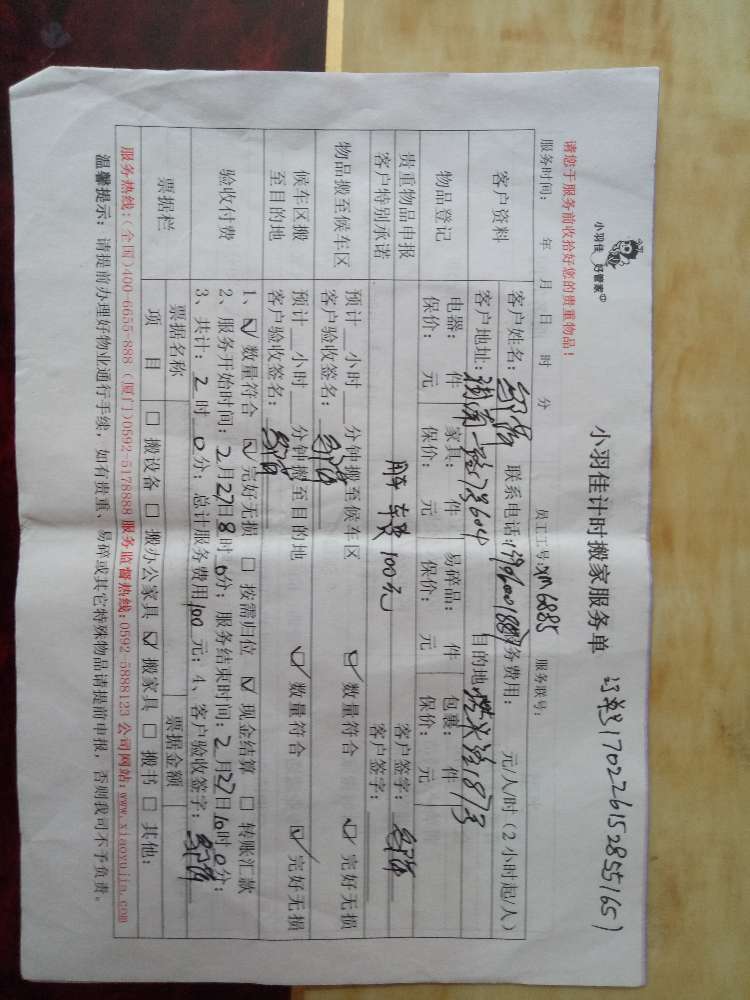 小羽佳 好管家
小羽佳计时搬家服务单
请您于服务前收拾好您的贵重物品！
服务时间： 年 月 日 时 分 员工工号：xm6885 服务联号：
客户资料
客户姓名： 联系电话： 服务费用： 元/人/时（2小时起/人）
客户地址： 目的地
物品登记
电器： 件 家具： 件 易碎品： 件 包裹： 件
保价： 元 保价： 元 保价： 元 保价： 元
贵重物品申报 客户签字：
客户特别承诺 车费100元 客户签字：
物品搬至候车区
预计__小时__分钟搬至候车区 ☑数量符合 ☑完好无损
客户验收签名：
候车区搬至目的地
预计__小时__分钟搬至目的地 ☑数量符合 ☑完好无损
客户验收签名：
验收付费
1、☑数量符合 ☑完好无损 □按需归位 ☑现金结算 □转账汇款
2、服务开始时间：2月27日8时0分；服务结束时间：2月27日10时0分；
3、共计：2时0分；总计服务费用100元；4、客户验收签字：
票据栏
票据名称 票据金额
项目 □搬设备 □搬办公家具 ☑搬家具 □搬书 □其他：
服务热线：(全国)400-6655-888 (厦门)0592-5178888 服务监督热线：0592-5888123 公司网站：www.xiaoyujia.com
温馨提示：请提前办理好物业通行手续，如有贵重、易碎或其它特殊物品请提前申报，否则我司不予负责。